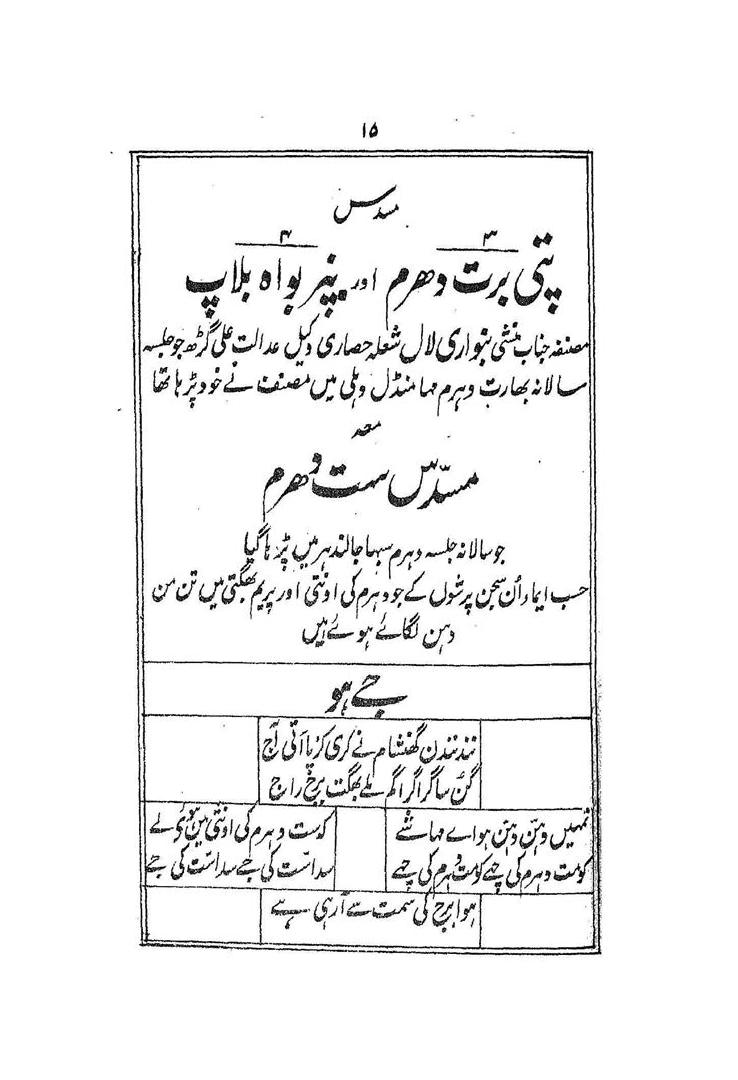 ۱۵
مسدس
۳ ۴
پتی برت دھرم اور پنر بواہ بلاپ
مصنفہ جناب منشی بنواری لال شعلہ حصاری وکیل عدالت علی گڑھ جو جلسہ
سالانہ بھارت دہرم مہا منڈل دہلی میں مصنف نے خود پڑہا تھا
معہ
مسدّس ست دھرم
جو سالانہ جلسہ دہرم سبہا جالندہر میں پڑہا گیا
حسب ایماء اُن سجن پرشوں کے جو دہرم کی اونتی اور پریم بھگتی میں تن من
دہن لگائے ہوئے ہیں
جے ہو
نند نندن گھنشام نے کری کرپا اتی آج
گن ساگر اگر اگم ملے بھگت برج راج
تمہیں دہن دہن ہو اے مہاشے
کہ ست دہرم کی اونتی میں ہوئی لے
کہو ست دہرم کی جے کہو ست دہرم کی جے
سدا ست کی جے سدا ست کی جے
ہوا برج کی سمت سے آ رہی ہے